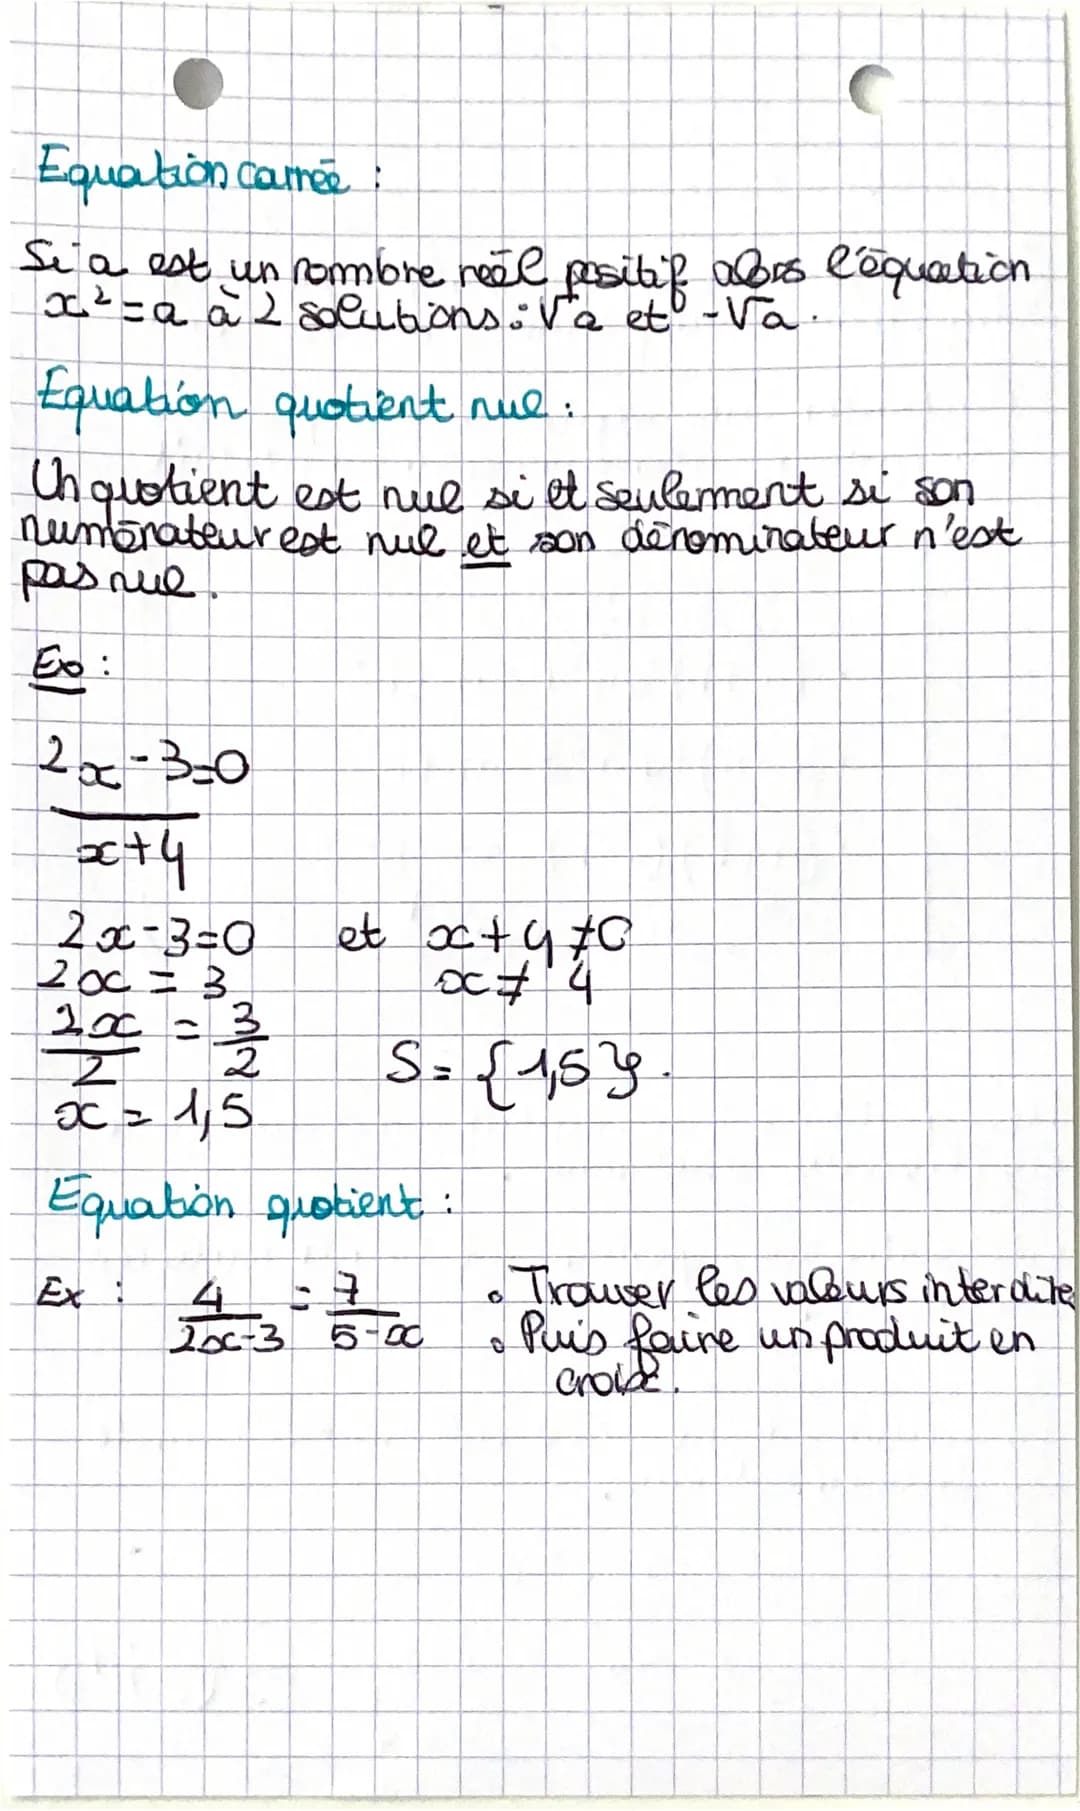 Equation carrée :
Si a est un nombre reél positif alors l'équation
x² = a à 2 solutions : √a et -√a.
Equation quotient nul :
Un quotient est nul si et seulement si son
numérateur est nul et son dénominateur n'est
pas nul.
Ex :
2x-3=0
x+4
2x-3=0 et x+4≠0
2x = 3 x≠ 4
2x = 3
2 2
S= {1,5}.
x = 1,5
Equation quotient :
Ex : 4 = 7 • Trouver les valeurs interdite
2x-3 5-x • Puis faire un produit en
croix.